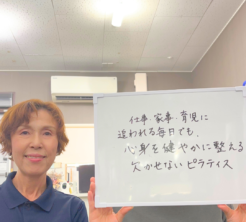 仕事・家事・育児に
追われる毎日でも、
心身を健やかに整える
欠かせないピラティス